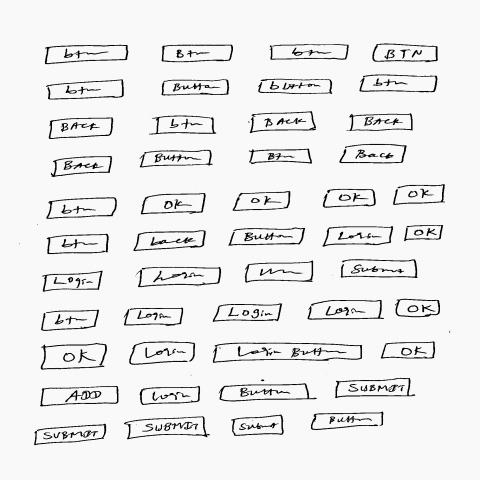 btn Btn btn BTN
btn Button button btn
BACK btn BACK BACK
BACK Button Btn Back
btn OK OK OK OK
btn back Button Login OK
Login Login Submit
btn Login Login Login OK
OK Login Login Button OK
ADD Login Button SUBMIT
SUBMIT SUBMIT Submit Button